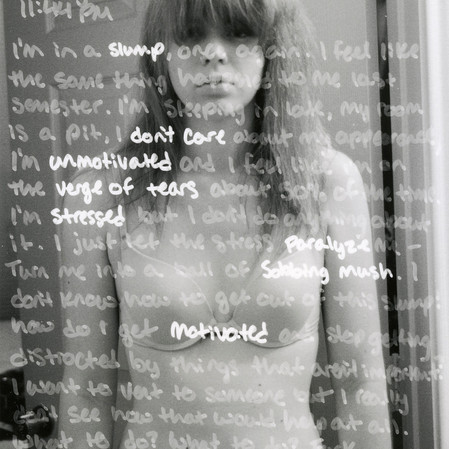 11:44 PM
I'm in a slump, once again. I feel like
the same thing happened to me last
semester. I'm sleeping in late, my room
is a pit, I don't care about my appearance,
I'm unmotivated and I feel like I'm on
the verge of tears about 50% of the time.
I'm stressed but I don't do anything about
it. I just let the stress Paralyze me -
Turn me into a ball of Sobbing mush. I
don't know how to get out of this slump:
how do I get motivated and stop getting
distracted by things that aren't important?
I want to vent to someone but I really
don't see how that would help at all.
What to do? What to do?